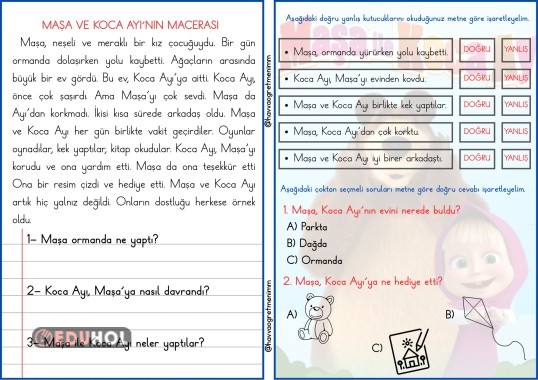 MAŞA VE KOCA AYI'NIN MACERASI
Maşa, neşeli ve meraklı bir kız çocuğuydu. Bir gün
ormanda dolaşırken yolu kaybetti. Ağaçların arasında
büyük bir ev gördü. Bu ev, Koca Ayı'ya aitti. Koca Ayı,
önce çok şaşırdı. Ama Maşa'yı çok sevdi. Maşa da
Ayı'dan korkmadı. İkisi kısa sürede arkadaş oldu. Maşa
ve Koca Ayı her gün birlikte vakit geçirdiler. Oyunlar
oynadılar, kek yaptılar, kitap okudular. Koca Ayı, Maşa'yı
korudu ve ona yardım etti. Maşa da ona teşekkür etti
Ona bir resim çizdi ve hediye etti. Maşa ve Koca Ayı
artık hiç yalnız değildi. Onların dostluğu herkese örnek
oldu.
1- Maşa ormanda ne yaptı?
2- Koca Ayı, Maşa'ya nasıl davrandı?
EDUHOL
3- Maşa ile Koca Ayı neler yaptılar?
@havvaogretmenimm
Aşağıdaki doğru yanlış kutucuklarını okuduğunuz metne göre işaretleyelim.
• Maşa, ormanda yürürken yolu kaybetti. DOĞRU YANLIŞ
• Koca Ayı, Maşa'yı evinden kovdu. DOĞRU YANLIŞ
• Maşa ve Koca Ayı birlikte kek yaptılar. DOĞRU YANLIŞ
• Maşa, Koca Ayı'dan çok korktu. DOĞRU YANLIŞ
• Maşa ve Koca Ayı iyi birer arkadaştı. DOĞRU YANLIŞ
Aşağıdaki çoktan seçmeli soruları metne göre doğru cevabı işaretleyelim.
1. Maşa, Koca Ayı'nın evini nerede buldu?
A) Parkta
B) Dağda
C) Ormanda
2. Maşa, Koca Ayı'ya ne hediye etti?
A)
B)
C)
@havvaogretmenimm